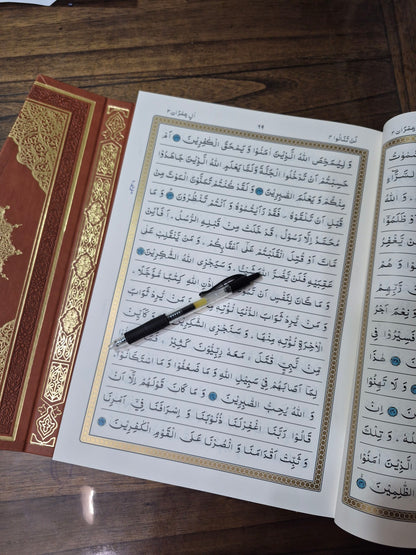 لَنْ تَنَالُوا ٤
اٰلِ عِمْرٰن ٣
وَلِيُمَحِّصَ اللّٰهُ الَّذِيْنَ اٰمَنُوْا وَيَمْحَقَ الْكٰفِرِيْنَ اَمْ
حَسِبْتُمْ اَنْ تَدْخُلُوا الْجَنَّةَ وَلَمَّا يَعْلَمِ اللّٰهُ الَّذِيْنَ جَاهَدُوْا
مِنْكُمْ وَيَعْلَمَ الصّٰبِرِيْنَ وَلَقَدْ كُنْتُمْ تَمَنَّوْنَ الْمَوْتَ مِنْ
قَبْلِ اَنْ تَلْقَوْهُ فَقَدْ رَاَيْتُمُوْهُ وَاَنْتُمْ تَنْظُرُوْنَ وَمَا
مُحَمَّدٌ اِلَّا رَسُوْلٌ قَدْ خَلَتْ مِنْ قَبْلِهِ الرُّسُلُ اَفَا۟ئِنْ
مَّاتَ اَوْ قُتِلَ انْقَلَبْتُمْ عَلٰٓى اَعْقَابِكُمْ وَمَنْ يَّنْقَلِبْ عَلٰى
عَقِبَيْهِ فَلَنْ يَّضُرَّ اللّٰهَ شَيْـًٔا وَسَيَجْزِى اللّٰهُ الشّٰكِرِيْنَ
وَمَا كَانَ لِنَفْسٍ اَنْ تَمُوْتَ اللّٰهِ كِتٰبًا مُّؤَجَّلًا
وَمَنْ يُّرِدْ ثَوَابَ وَمَنْ يُّرِدْ ثَوَابَ
الْاٰخِرَةِ نُؤْتِهٖ مِنْهَا وَسَنَجْزِى الشّٰكِرِيْنَ
مِّنْ نَّبِىٍّ قٰتَلَ مَعَهٗ رِبِّيُّوْنَ كَثِيْرٌ
لِمَآ اَصَابَهُمْ فِىْ سَبِيْلِ اللّٰهِ وَمَا ضَعُفُوْا وَمَا اسْتَكَانُوْا
وَاللّٰهُ يُحِبُّ الصّٰبِرِيْنَ وَمَا كَانَ قَوْلَهُمْ اِلَّآ اَنْ
قَالُوْا رَبَّنَا اغْفِرْ لَنَا ذُنُوْبَنَا وَاِسْرَافَنَا فِىْٓ اَمْرِنَا
وَثَبِّتْ اَقْدَامَنَا وَانْصُرْنَا عَلَى الْقَوْمِ الْكٰفِرِيْنَ